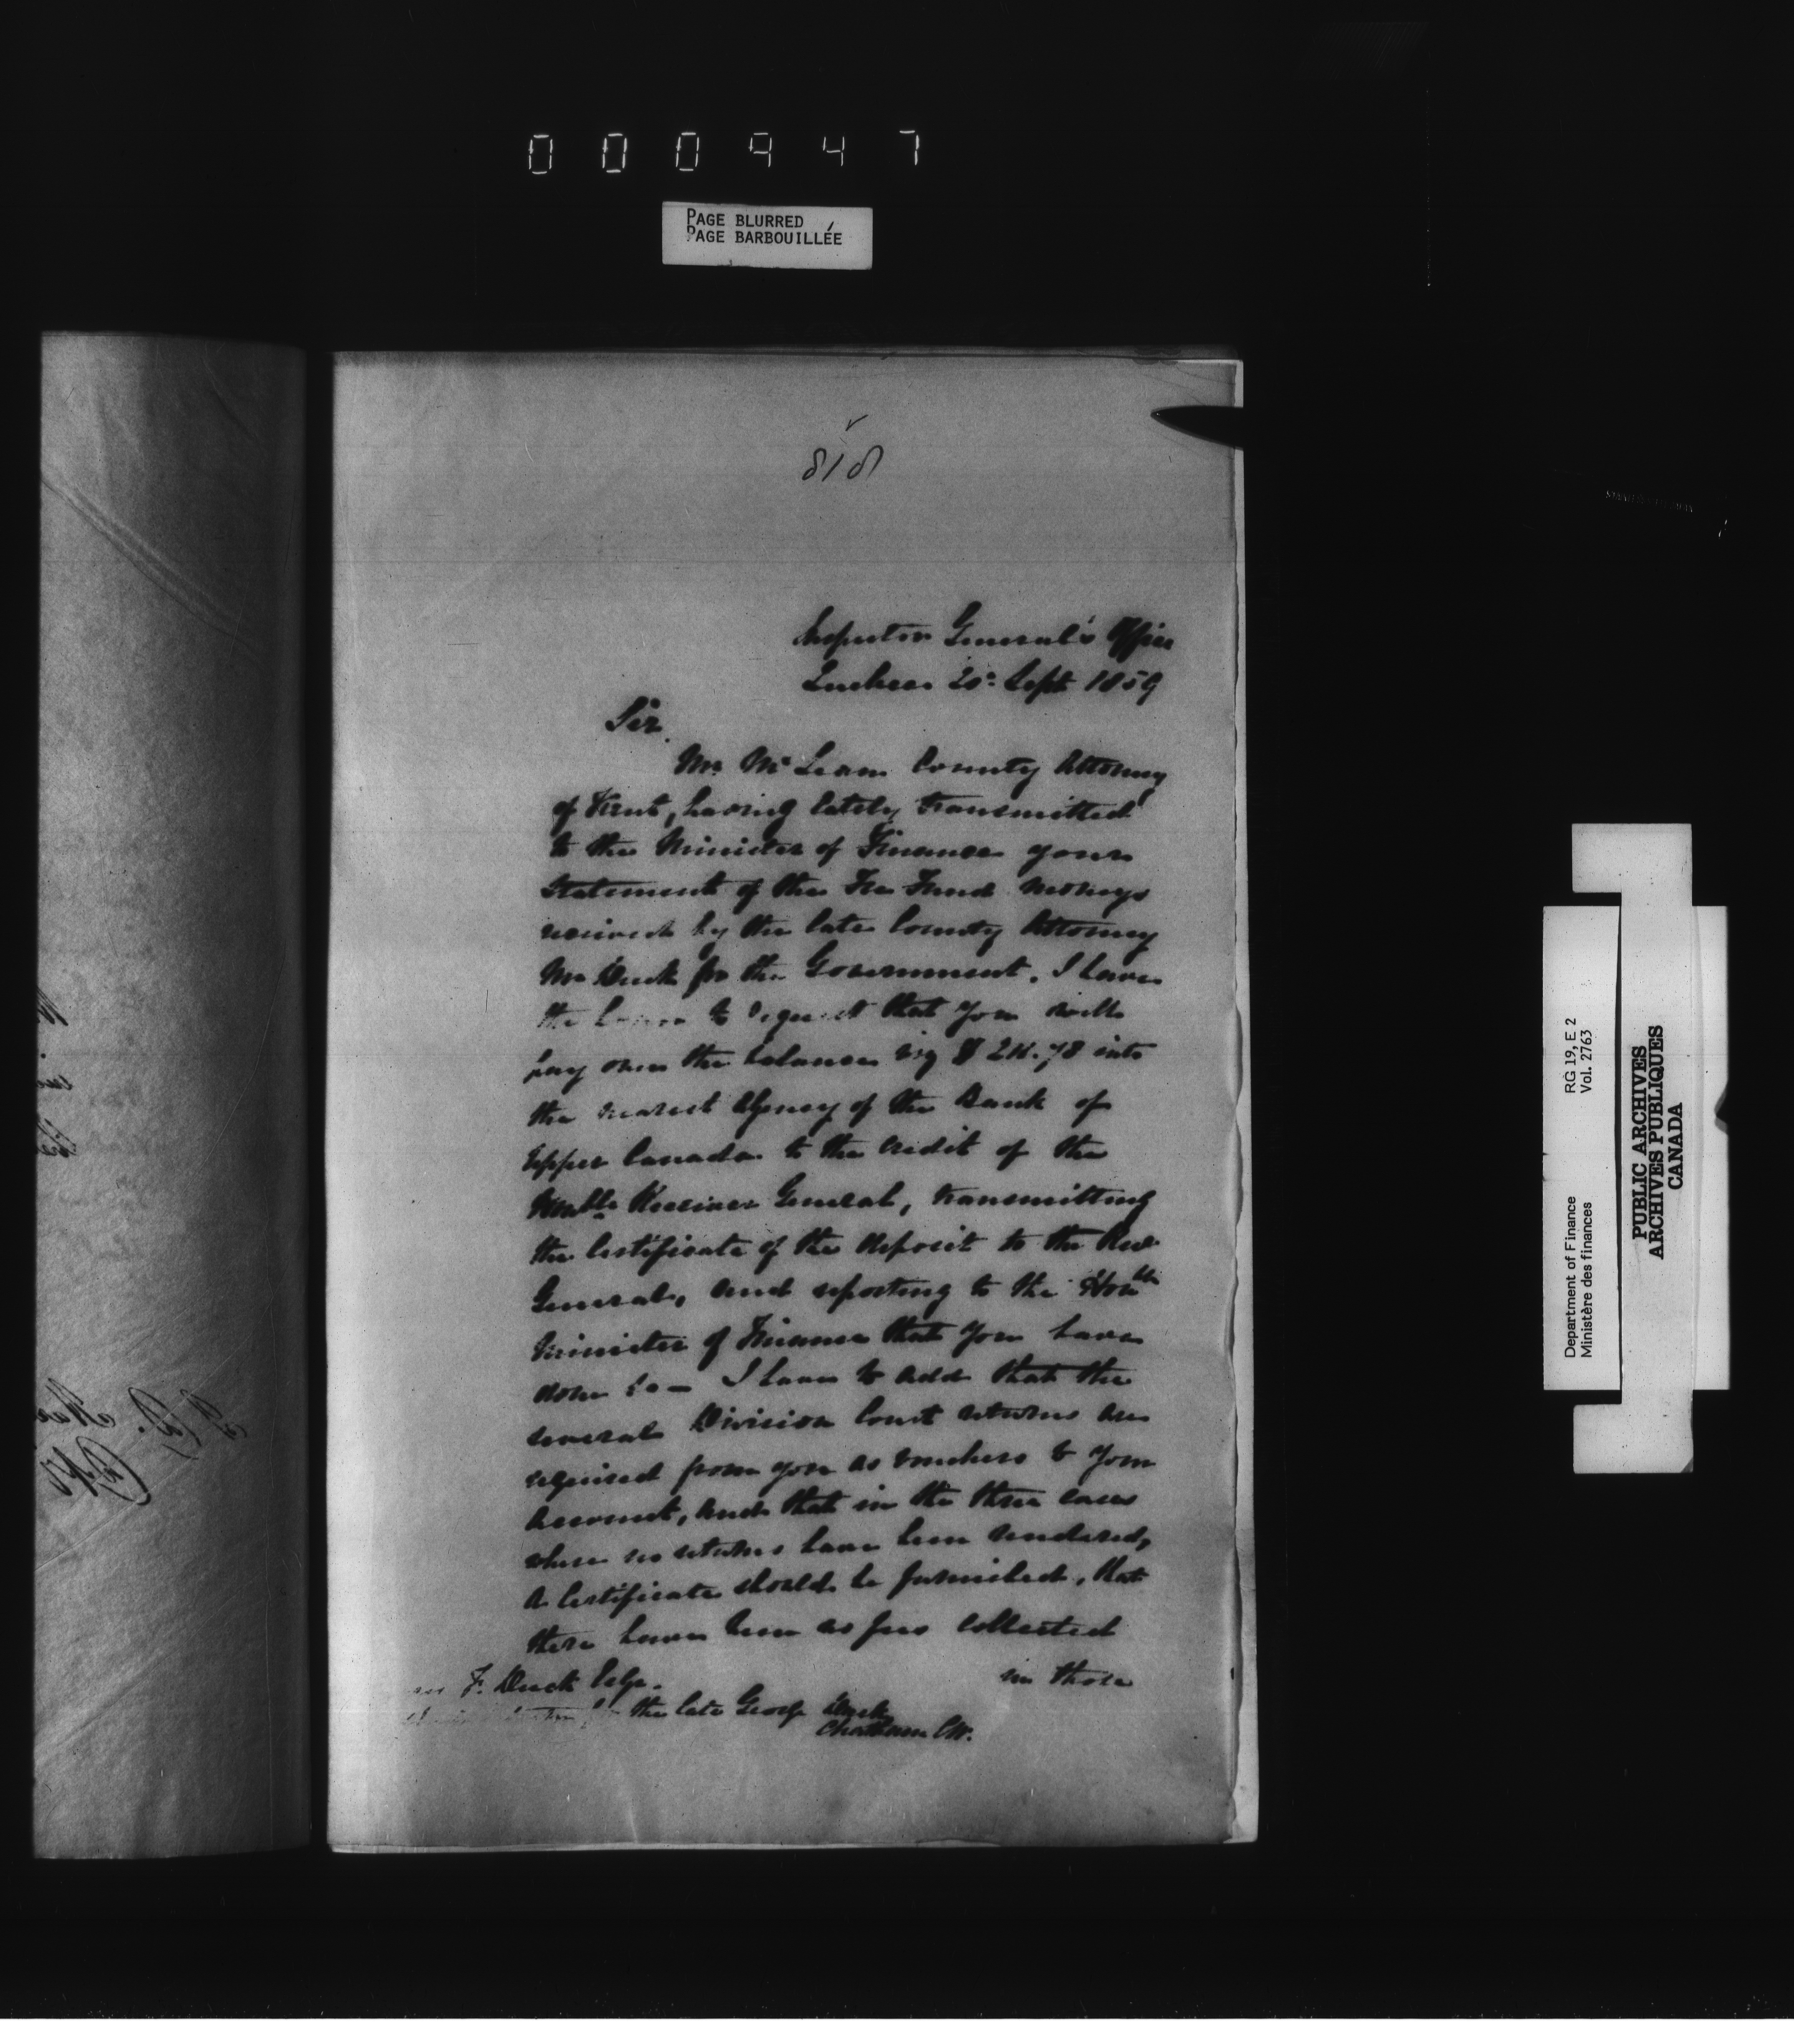 000947
PAGE BLURRED
PAGE BARBOUILLÉE
818
Inspector General's Office
Quebec 20: Sept 1859
Sir
Mr McLean County Attorney
of Kent, having lately transmitted
to the Minister of Finance your
Statement of the Fee Fund moneys
received by the late County Attorney
Mr Duck for the Government. I have
the honor to request that you will
pay over the balance viz $ .78 into
the nearest Agency of the Bank of
Upper Canada to the credit of the
Honble Receiver General, transmitting
the Certificate of the deposit to the Rec
General, and reporting to the Honble
Minister of Finance that you have
done so — I have to add that the
several Division Court returns are
required from you as vouchers to your
account, and that in the three cases
where no returns have been rendered,
a Certificate should be furnished, that
there have been no fees collected
in those
F. Duck Esqr.
the late George Duck
Chatham CW.
Department of Finance RG 19, E 2
Ministère des finances Vol. 2763
PUBLIC ARCHIVES
ARCHIVES PUBLIQUES
CANADA